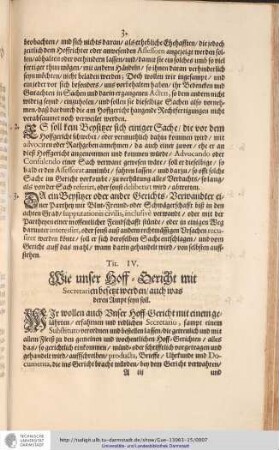 3.
beobachten / und sich nichts daran / als erhebliche Ehehafften / die jedoch
zeitlich dem Hoffrichter oder anwesenden Assessorn angezeiget werden sol-
len / abhalten oder verhindern lassen / und damit sie an solchem umb so viel
fertiger seyn mögen / mit andern Händeln / so ihnen daran verhinderlich
seyn möchten / nicht beladen werden; Doch wollen wir ungesampt / und
ein jeder vor sich besonders / uns vorbehalten haben / ihr Bedencken und
Gutachten in Sachen und darin ergangenen Acten, so dem andern nicht
widrig seynd / einzuholen / und sollen sie dieselbige Sachen also verneh-
men / daß dardurch die am Hoffgericht hangende Rechtfertigungen nicht
verabsaumet noch verweilet werden.
2. ES soll kein Beysitzer sich einiger Sache / die vor dem
Hoffgericht schwebet / oder vermuthlich dahin kommen wird / mit
advociren oder Rathgeben annehmen / da auch einer zuvor / ehe er an
das Hoffgericht angenommen und kommen würde / Advocando oder
Consulendo einer Sach verwant gewesen wäre / soll er dieselbige / so
bald er den Assessorn annimbt / fahren lassen / und daran / so offt solche
Sache am Gericht vorkombt / zu verhütung aller Verdachts / solang
als von der Sach referirt, oder sonst deliberirt wird / abtreten.
3. DA ein Beysitzer oder ander Gerichts-Verwandter ei-
ner Parthey mit Blut-Freund- oder Schwägerschafft biß in den
achten Grad / supputationis civilis, inclusivè verwandt / oder mit der
Partheyen einer in offentlicher Feindschafft stünde / oder in einigen Weg
darunter interessirt, oder sonst auß andern rechtmässigen Ursachen recu-
sirt werden könte / soll er sich derselben Sachen entschlagen / und vom
Gericht auff das mahl / wann darin gehandelt wird / von selbsten auff-
stehen.
Tit. IV.
Wie unser Hoff-Gericht mit
Secretarien besetzt werden / auch was
deren Ampt seyn soll.
WIr wollen auch Unser Hoff-Gericht mit einem ge-
lährten / erfahrnen und redlichen Secretario, sampt einem
Substituto verordnen und bestellen lassen / die getreulich und mit
allem Fleiß zu den gemeinen und wochentlichen Hoff-Gerichten / alles
das / so gerichtlich einkommen / münd- oder schrifftlich vorgetragen und
gehandelt wird / auffschreiben / producta, Brieffe / Uhrkunde und Do-
cumenta, die ins Gericht bracht würden / bey dem Gericht verwahren /
A iij
und
TECHNISCHE
UNIVERSITÄT
DARMSTADT
Universitäts- und Landesbibliothek Darmstadt